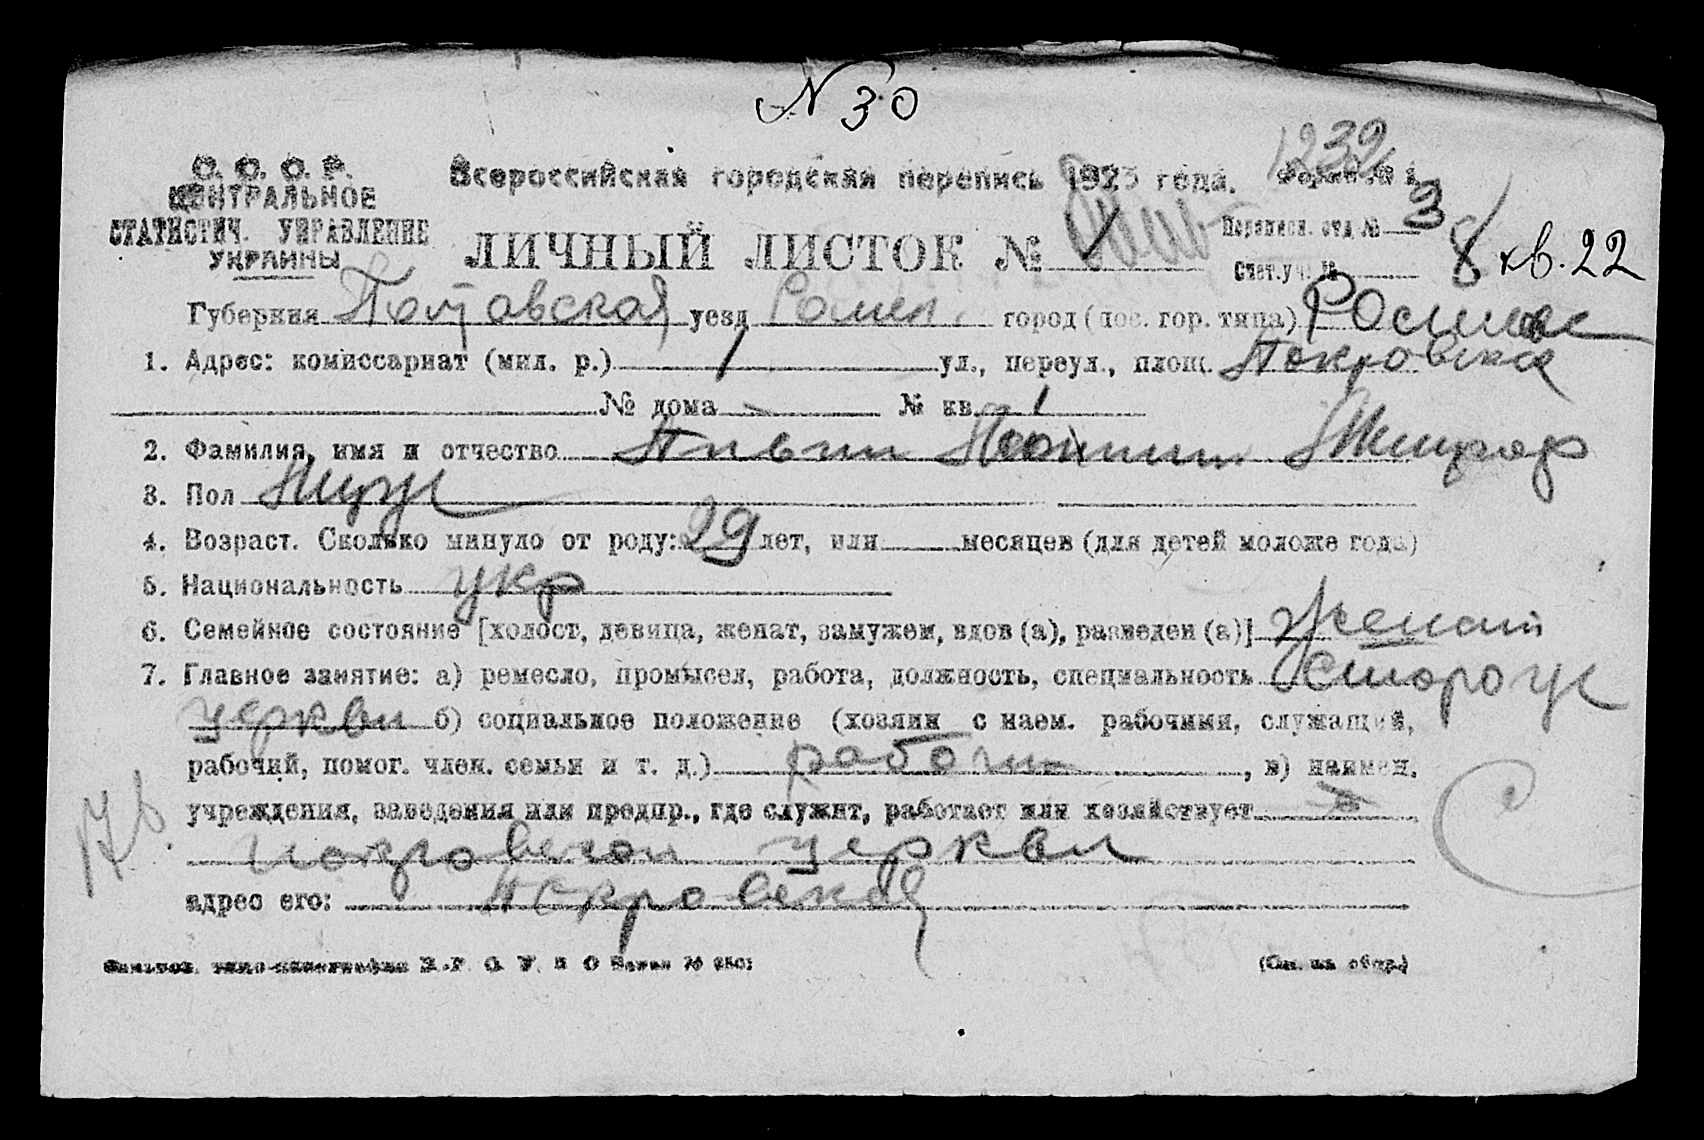 N 30
1232
С. С. С. Р.
ЦЕНТРАЛЬНОЕ
СТАТИСТИЧ. УПРАВЛЕНИЕ
УКРАИНЫ
Всероссийская городская перепись 1923 года. Форма № 1
ЛИЧНЫЙ ЛИСТОК № 1
Переписн. отд № 3
Счет. уч. № 8 кв. 22
Губерния Полтавская уезд Ромен. город (пос. гор. типа)
1. Адрес: комиссариат (мил. р.) 1 ул., переул., площ. Покровская
№ дома № кв 1
2. Фамилия, имя и отчество
3. Пол Муж
4. Возраст. Сколько минуло от роду: 29 лет, или месяцев (для детей моложе года)
5. Национальность укр
6. Семейное состояние [холост, девица, женат, замужем, вдов (а), разведен (а)] женат
7. Главное занятие: а) ремесло, промысел, работа, должность, специальность сторож
церкви б) социальное положение (хозяин с наем. рабочими, служащий,
рабочий, помог. член. семьи и т. д.) рабочий, в) наимен.
учреждения, заведения или предпр., где служит, работает или хозяйствует
Покровской церкви
адрес его: Покровская
17б.
С
(См. на обор.)